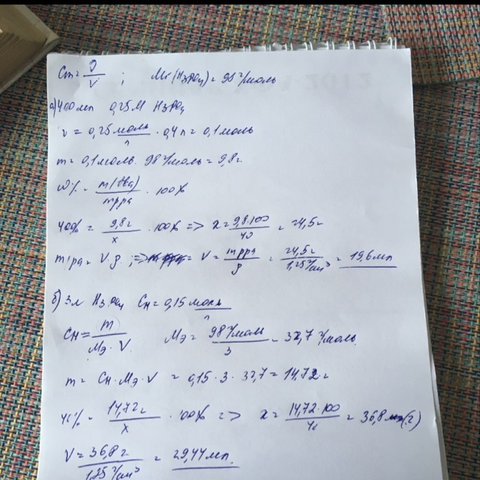 Cm = ν/V ; Mr(H₃PO₄) = 98 г/моль
а) 400 мл 0,25 М H₃PO₄
ν = 0,25 моль/л · 0,4 л = 0,1 моль
m = 0,1 моль · 98 г/моль = 9,8 г
ω% = m(в-ва)/mр-ра · 100%
40% = 9,8 г/x · 100% => x = 9,8·100/40 = 24,5 г
mр-ра = Vρ ; => = V = mр-ра/ρ = 24,5 г/1,25 г/см³ = 19,6 мл
б) 3 л H₃PO₄ Cн = 0,15 моль/л
Cн = m/Mэ · V Mэ = 98 г/моль/3 = 32,7 г/моль
m = Cн · Mэ · V = 0,15 · 3 · 32,7 = 14,72 г
40% = 14,72 г/x · 100% => x = 14,72·100/40 = 36,8 (г)
V = 36,8 г/1,25 г/см³ = 29,44 мл